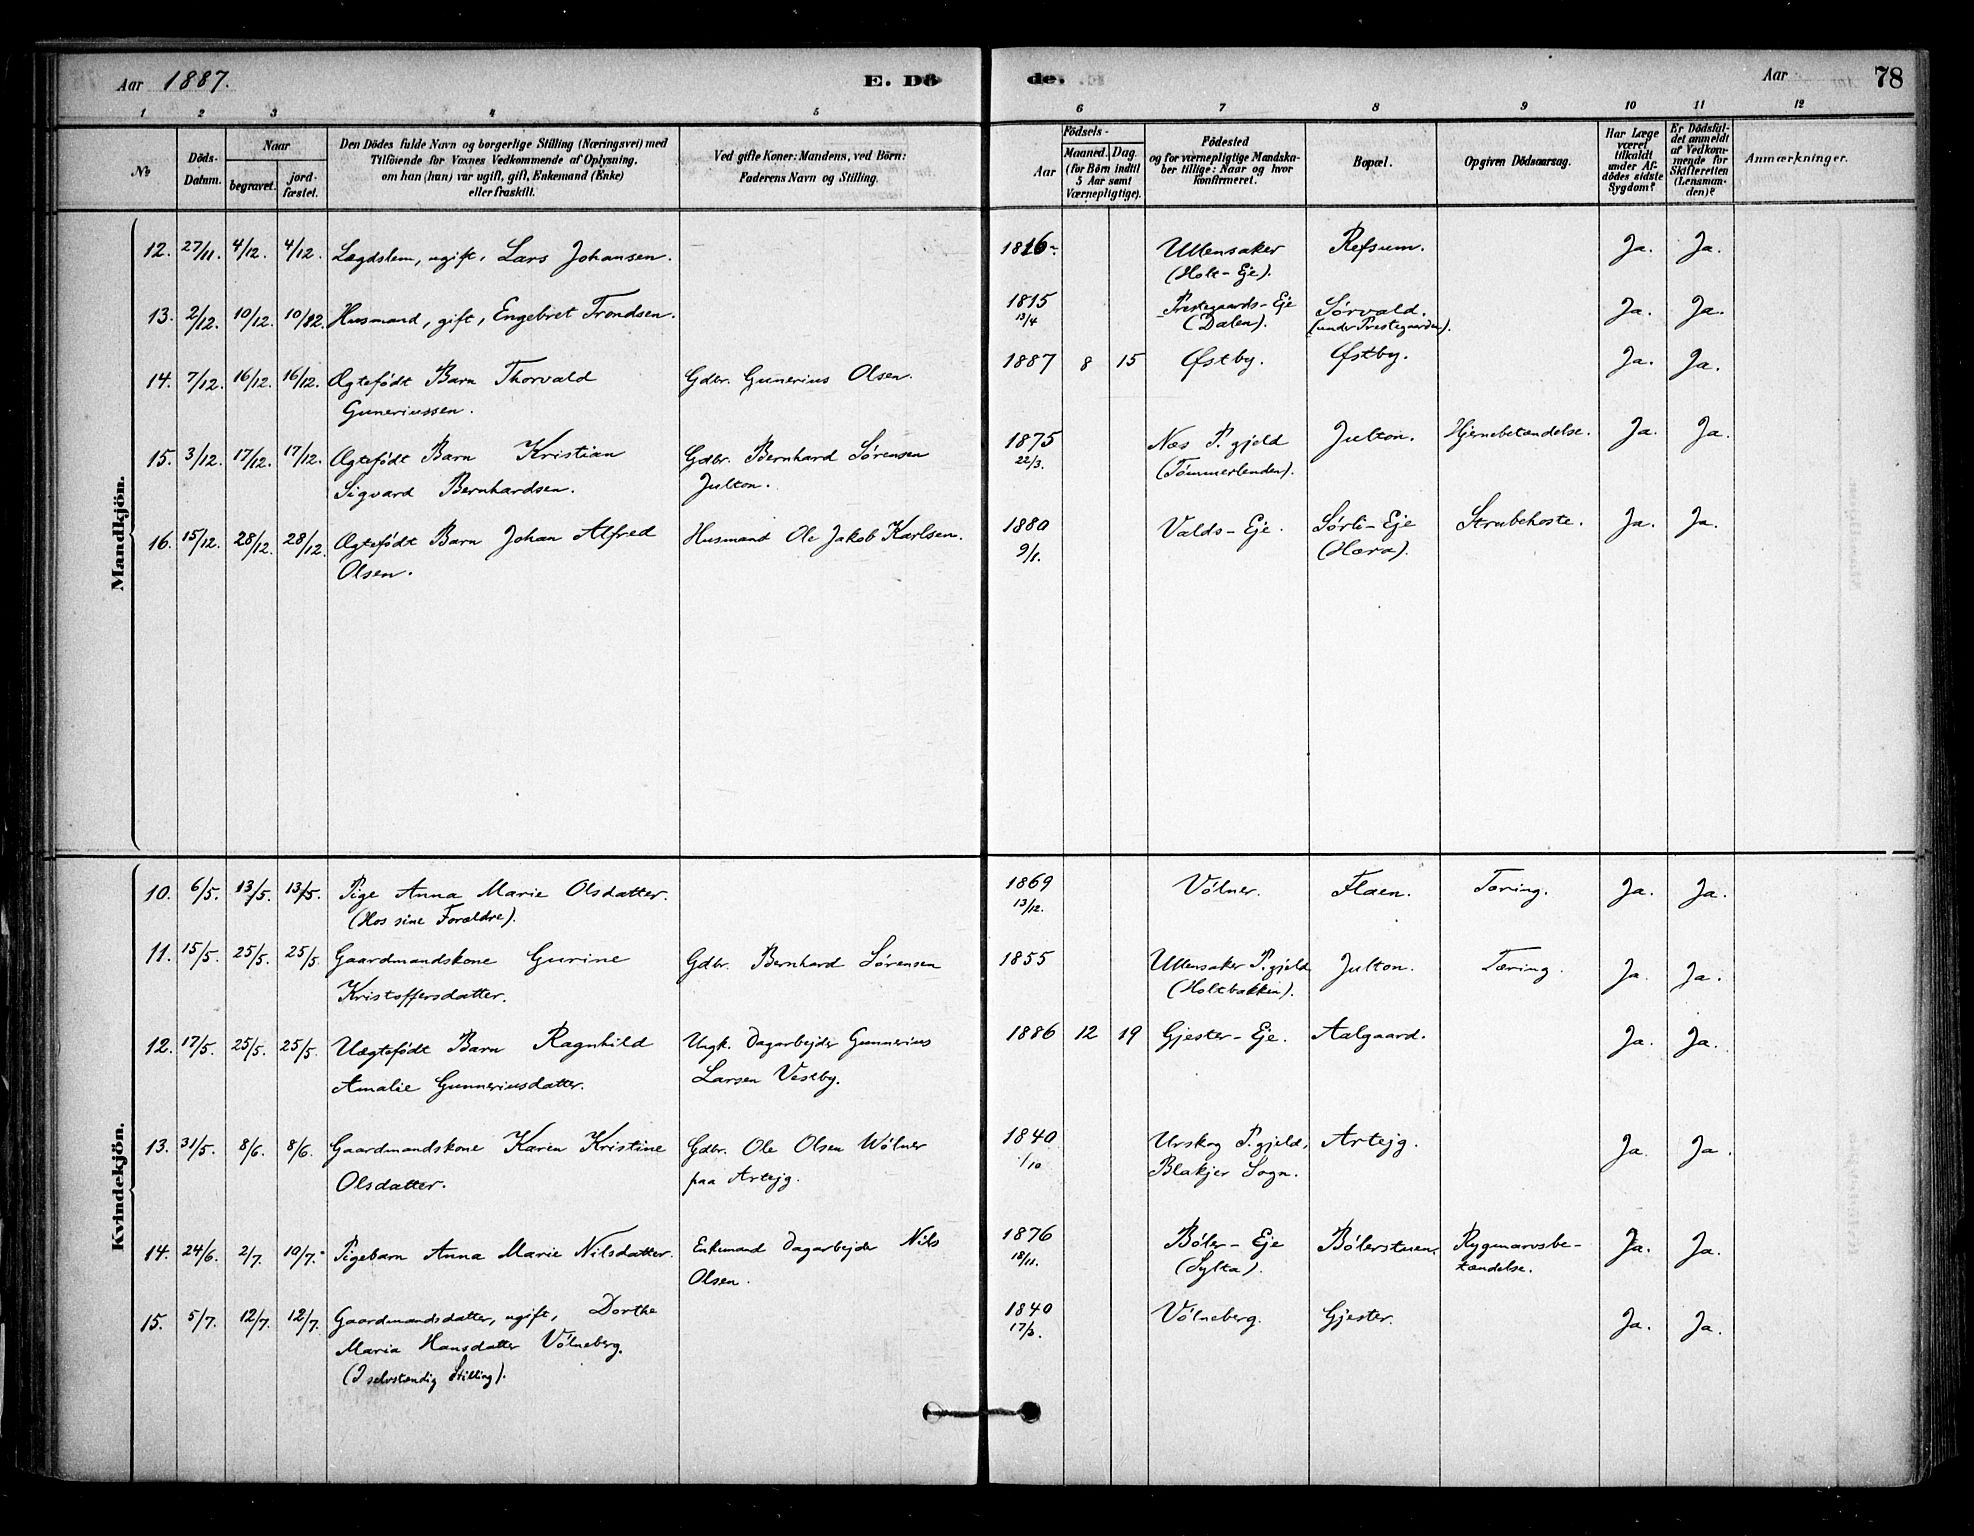 Aar 1887. E. Dö de. Aar 78
1 2 3 4 5 6 7 8 9 10 11 12
No
Döds-
Datum.
Naar
begravet.
jord-
fæstet.
Den Dödes fulde Navn og borgerlige Stilling (Næringsvei) med
Tilföiende for Voxnes Vedkommende af Oplysning,
om han (hun) var ugift, gift, Enkemand (Enke)
eller fraskilt.
Ved gifte Koner: Mandens, ved Börn:
Faderens Navn og Stilling.
Födsels-
Aar
Maaned. Dag.
(for Børn indtil
5 Aar samt
Værnepligtige).
Födested
og for værnepligtige Mandska-
ber tillige: Naar og hvor
konfirmeret.
Bopæl.
Opgiven Dödsaarsag.
Har Læge
været
tilkaldt
under Af-
dödes sidste
Sygdom?
Er Dödsfal-
det anmeldt
af Vedkom-
mende for
Skifteretten
(Lensman-
den)?
Anmærkninger.
Mandkjön.
12. 27/11. 4/12. 4/12. Lægdslem, ugift, Lars Johansen. 1816 Ullensaker Refsum. Ja. Ja.
(Holt-Eje).
13. 2/12. 10/12. 10/12. Husmand, gift, Engebret Trondsen. 1815 Prestegaards-Eje Sørvald. Ja. Ja.
13/4 (Dalen). (under Prestegaarden).
14. 7/12. 16/12. 16/12. Ægtefødt Barn Thorvald Gdbr. Gunerius Olsen. 1887 8 15 Østby. Østby. Ja. Ja.
Guneriussen.
15. 3/12. 17/12. 17/12. Ægtefødt Barn Kristian Gdbr. Bernhard Sørensen 1875 Næs P.gjeld Julton. Hjernebetændelse. Ja. Ja.
Sigvard Bernhardsen. Julton. 22/3. (Tømmerlunden).
16. 15/12. 28/12. 28/12. Ægtefødt Barn Johan Alfred Husmand Ole Jakob Karlsen. 1880 Valds-Eje. Sørli-Eje Strubehoste. Ja. Ja.
Olsen. 9/1. (Hæra).
Kvindekjön.
10. 6/5. 13/5. 13/5. Pige Anna Marie Olsdatter. 1869 Vølner. Flaen. Tæring. Ja. Ja.
(Hos sine Forældre). 13/12.
11. 15/5. 25/5. 25/5. Gaardmandskone Gurine Gdbr. Bernhard Sørensen 1855 Ullensaker P.gjeld Julton. Tæring. Ja. Ja.
Kristoffersdatter. (Holtbakken).
12. 17/5. 25/5. 25/5. Uægtefødt Barn Ragnhild Ungk. Dagarbejder Gunnerius 1886 12 19 Gjester-Eje. Aalgaard. Ja. Ja.
Amalie Gunneriusdatter. Larsen Vestby.
13. 31/5. 8/6. 8/6. Gaardmandskone Karen Kristine Gdbr. Ole Olsen Wølner 1840 Urskog P.gjeld, Artejg. Ja. Ja.
Olsdatter. paa Artejg. 1/10 Blakjer Sogn.
14. 24/6. 2/7. 10/7. Pigebarn Anna Marie Nilsdatter. Enkemand Dagarbejder Nils 1876 Bøler-Eje Bølerstuen. Rygmarvsbe- Ja. Ja.
Olsen. 18/11. (Sylta). tændelse.
15. 5/7. 12/7. 12/7. Gaardmandsdatter, ugift, Dorthe 1840 Vølneberg. Gjester. Ja. Ja.
Maria Hansdatter Vølneberg. 17/3.
(I selvstændig Stilling).